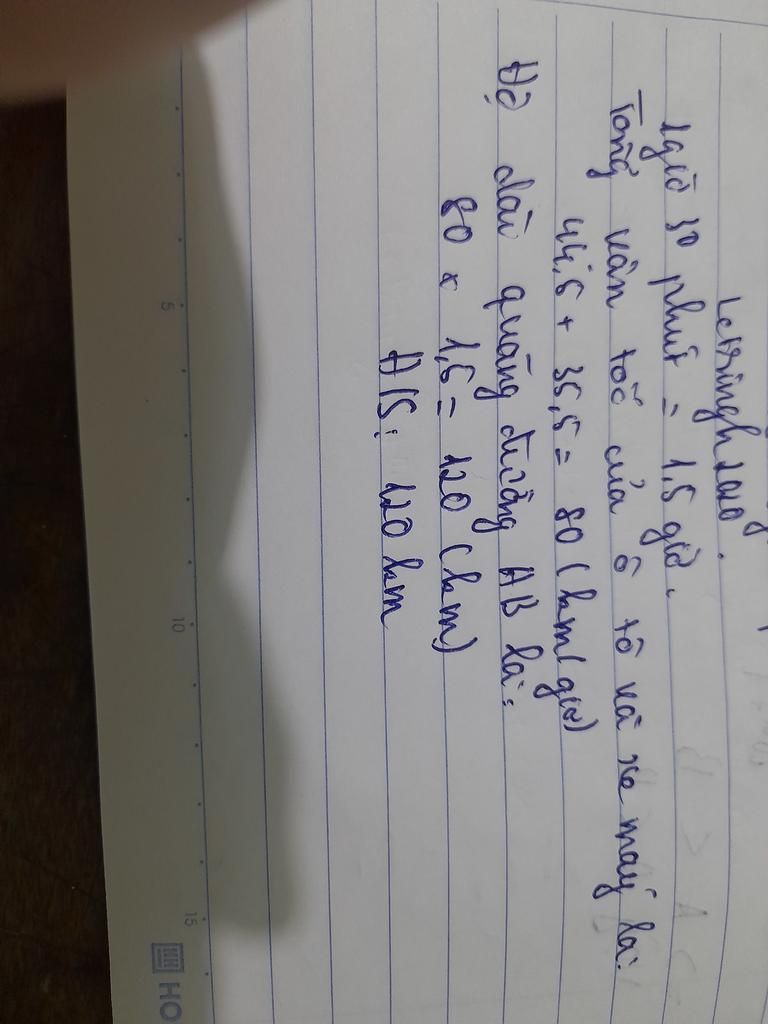 Letsingh2010.
1giờ 30 phút = 1,5 giờ.
Tổng vân tốc của ô tô và xe máy là:
44,5 + 35,5 = 80 (km/giờ)
Độ dài quãng đường AB là:
80 x 1,5 = 120 (km)
Đ/S: 120 km
5
10
15
HO